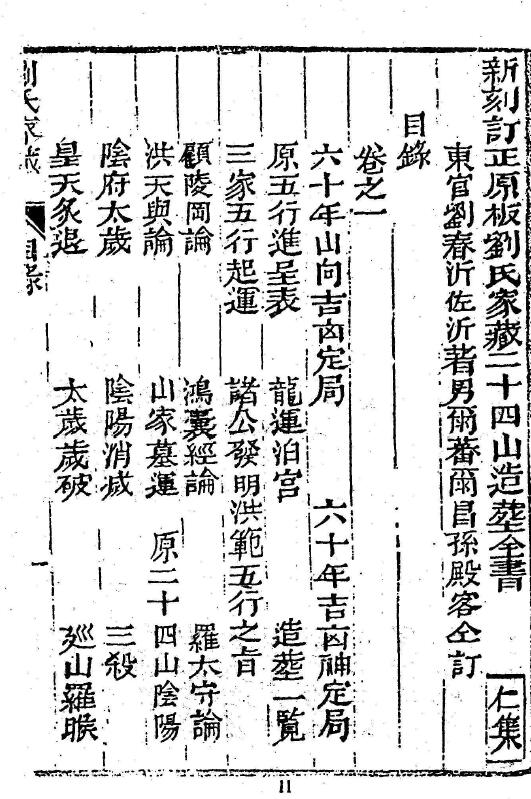 新刻訂正原板劉氏家藏二十四山造塟全書 仁集
東官劉春沂佐沂著男爾蕃爾昌孫殿客仝訂
目錄
卷之一
六十年山向吉凶定局 六十年吉凶神定局
原五行進呈表 龍運泊宮 造塟一覽
三家五行起運 諸公發明洪範五行之旨
顧陵岡論 鴻囊經論 羅太守論
洪天與論 山家墓運 原二十四山陰陽
陰府太歲 陰陽消滅 三殺
皇天炙退 太歲歲破 廵山羅睺
劉氏家藏 目錄 一
11